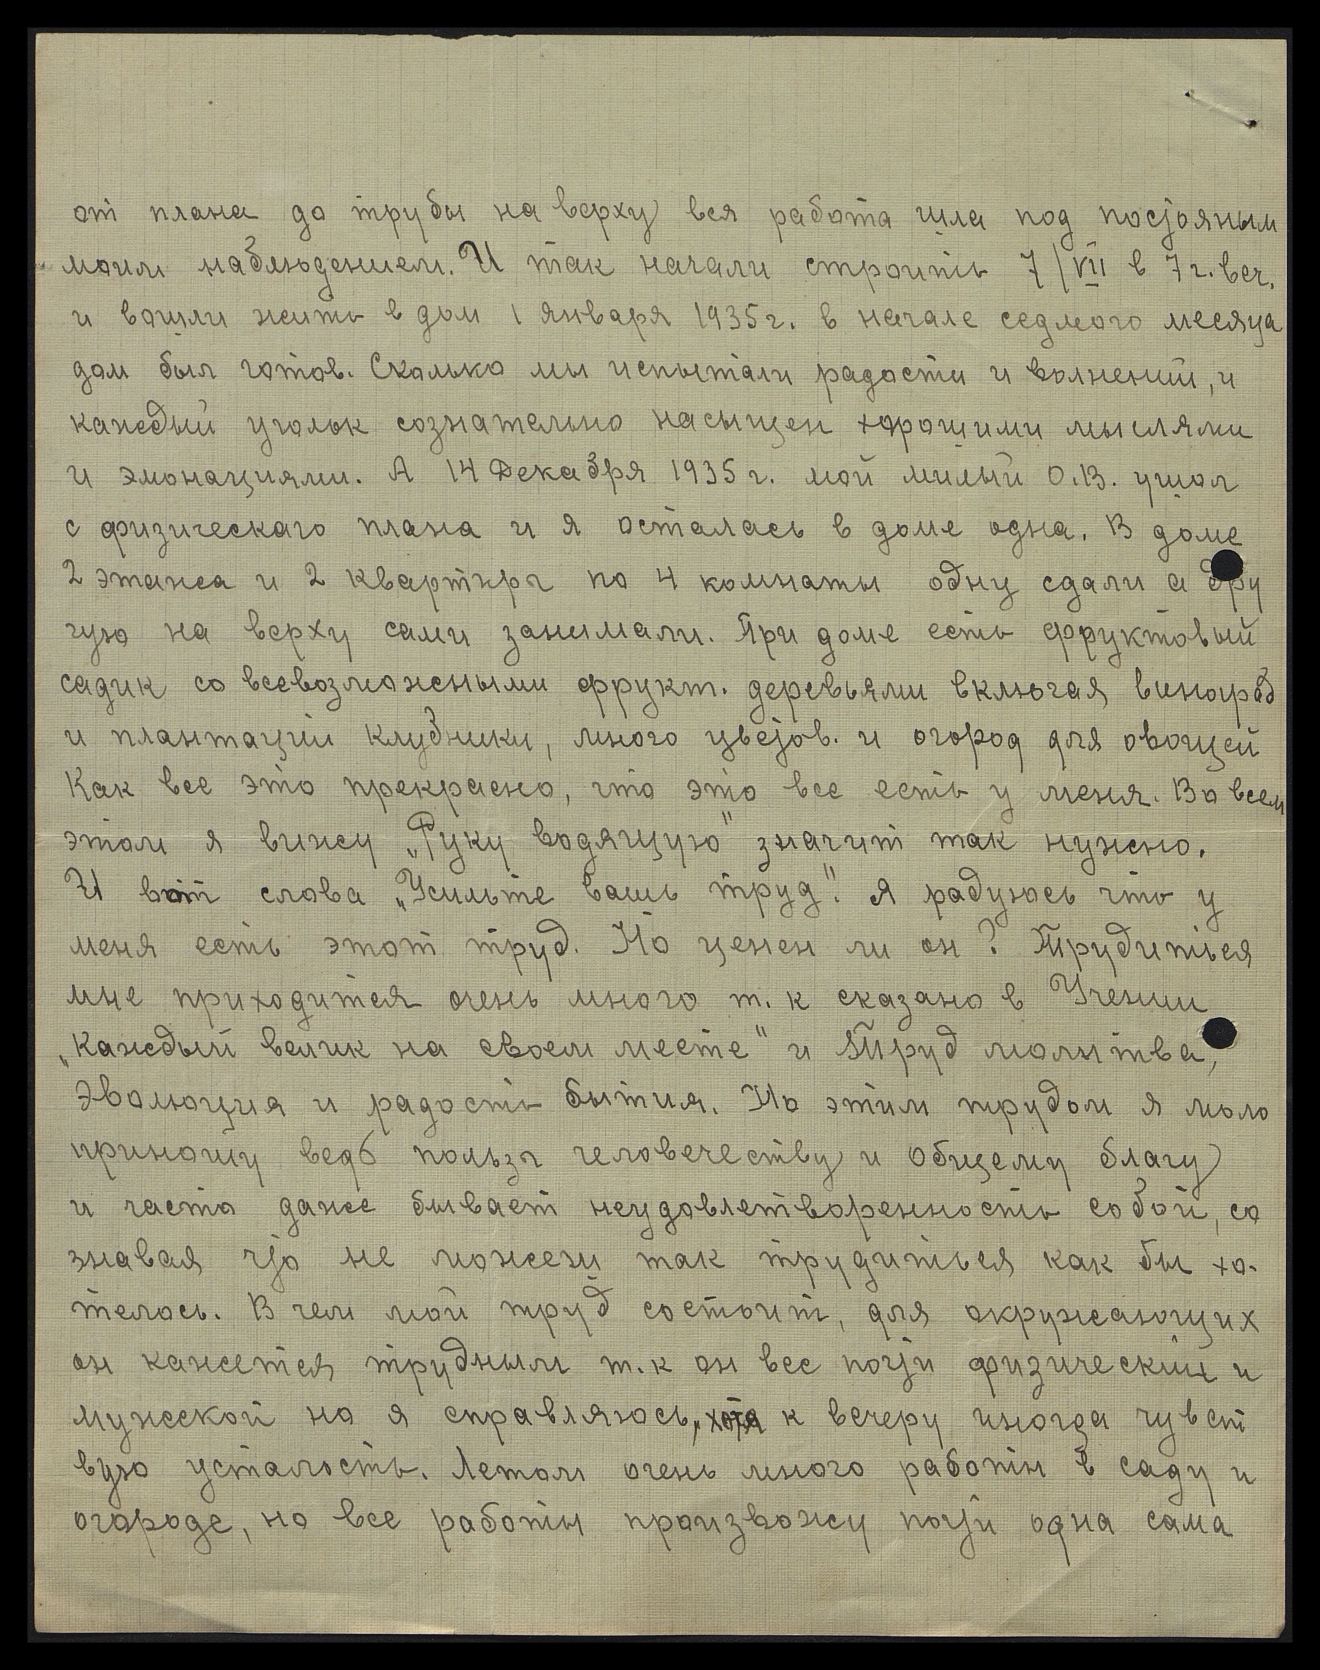 от плана до трубы на верху вся работа шла под посјояным
моим наблюдением. И так начали строить 7/VII в 7 г. веч.
и вошли жить в дом 1 января 1935 г. в начале седмого месяца
дом был готов. Сколько мы испытали радости и волнений, и
каждый уголок сознательно насыщен хорошими мыслями
и эмонациями. А 14 Декабря 1935 г. мой милый О.В. ушол
с физическаго плана и я осталась в доме одна. В доме
2 этажа и 2 квартиры по 4 комнаты одну сдали а дру
гую на верху сами занимали. При доме есть фруктовый
садик со всевозможными фрукт. деревьями включая виноград
и плантаций клубники, много цвејов. и огород для овощей
Как все это прекрасно, что это все есть у меня. Во всем
этом я вижу „Руку водящую" значит так нужно.
И вот слова „Усильте вашь труд". Я радуюсь что у
меня есть этот труд. Но ценен ли он? Трудиться
мне приходится очень много т. к сказано в Учении
„Каждый велик на своем месте" и Труд молитва,
Эволюция и радость бытия. Но этим трудом я моло
приношу ведь пользы человечеству и Общему благу
и часто даже бывает неудовлетворенность собой, со
знавая чјо не можеш так трудиться как бы хо-
телось. В чем мой труд состоит, для окружающих
он кажется трудным т. к он все почји физический и
мужской но я справляюсь, хотя к вечеру иногда чувст
вую усталость. Летом очень много работы в саду и
огороде, но все работы произвожу почји одна сама